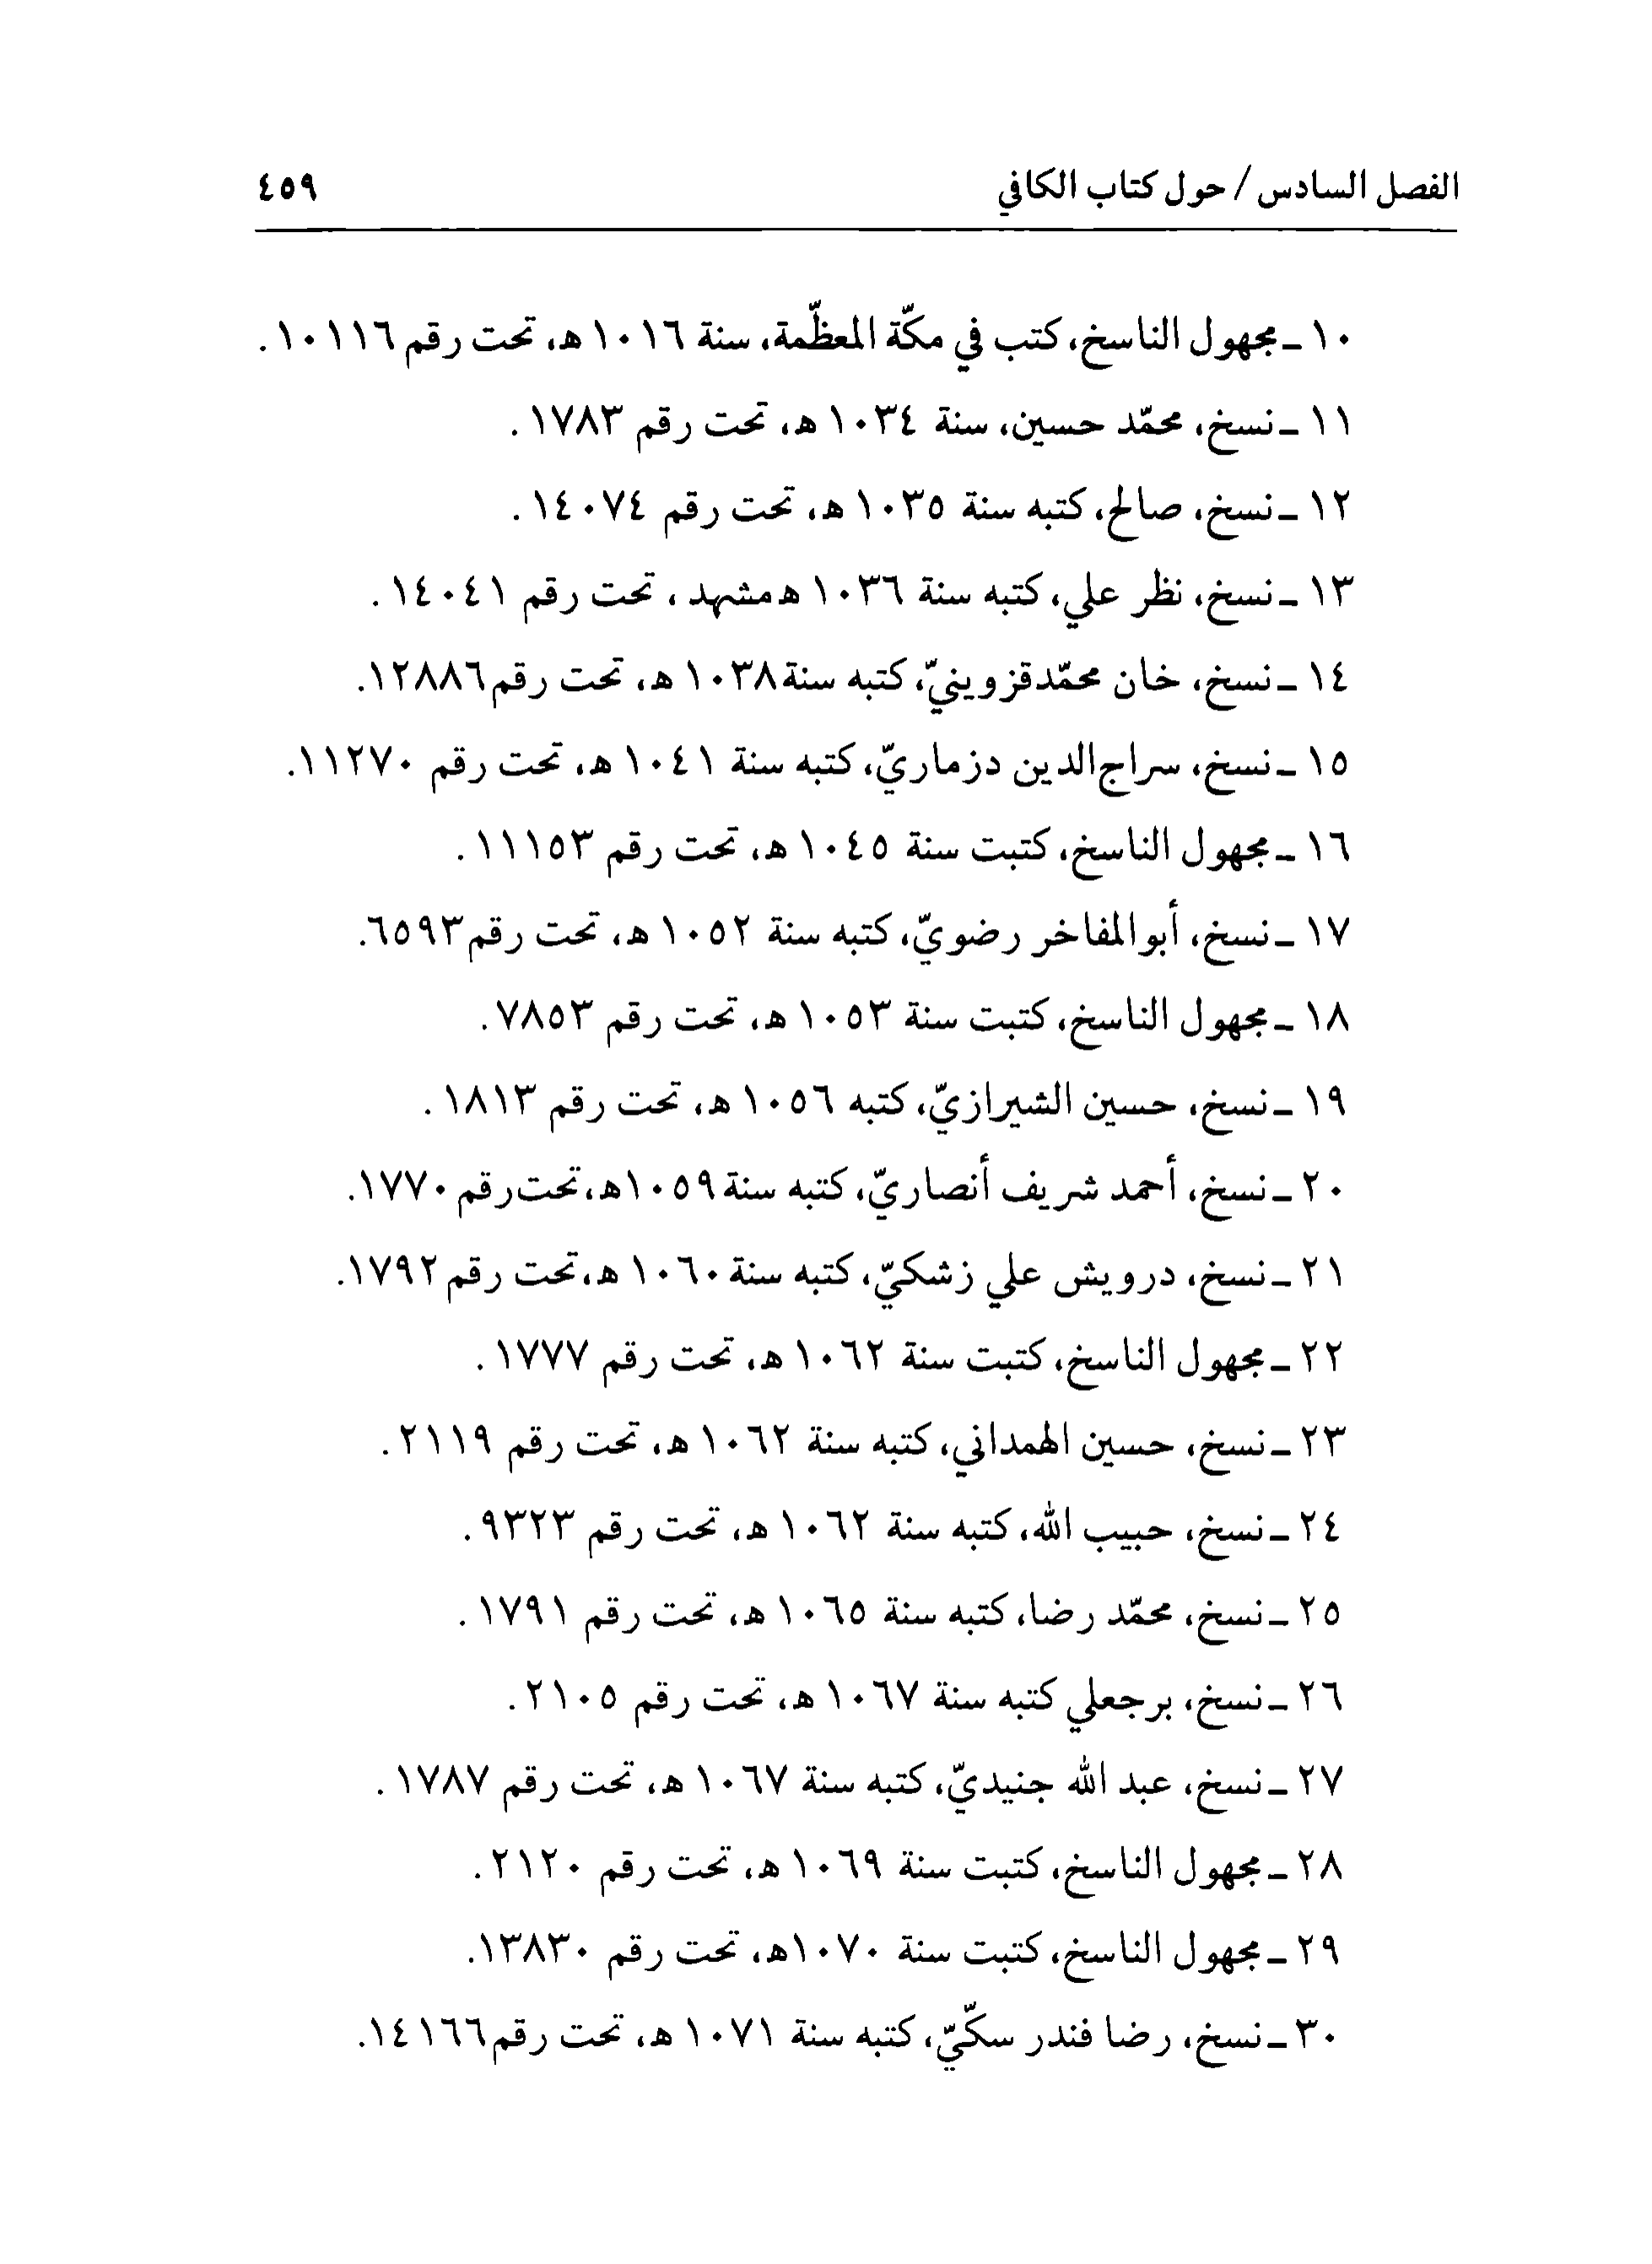 الفصل السادس / حول كتاب الكافي ٤٥٩
١٠ ـ مجهول الناسخ، كتب في مكّة المعظّمة، سنة ١٠١٦ هـ، تحت رقم ١٠١١٦.
١١ ـ نسخ، محمّد حسين، سنة ١٠٣٤ هـ، تحت رقم ١٧٨٣.
١٢ ـ نسخ، صالح، كتبه سنة ١٠٣٥ هـ، تحت رقم ١٤٠٧٤.
١٣ ـ نسخ، نظر علي، كتبه سنة ١٠٣٦ هـ مشهد، تحت رقم ١٤٠٤١.
١٤ ـ نسخ، خان محمّدقزوينيّ، كتبه سنة ١٠٣٨ هـ، تحت رقم ١٢٨٨٦.
١٥ ـ نسخ، سراج‌الدين دزماريّ، كتبه سنة ١٠٤١ هـ، تحت رقم ١١٢٧٠.
١٦ ـ مجهول الناسخ، كتبت سنة ١٠٤٥ هـ، تحت رقم ١١١٥٣.
١٧ ـ نسخ، أبوالمفاخر رضويّ، كتبه سنة ١٠٥٢ هـ، تحت رقم ٦٥٩٣.
١٨ ـ مجهول الناسخ، كتبت سنة ١٠٥٣ هـ، تحت رقم ٧٨٥٣.
١٩ ـ نسخ، حسين الشيرازيّ، كتبه ١٠٥٦ هـ، تحت رقم ١٨١٣.
٢٠ ـ نسخ، أحمد شريف أنصاريّ، كتبه سنة ١٠٥٩هـ، تحت رقم ١٧٧٠.
٢١ ـ نسخ، درويش علي زشكيّ، كتبه سنة ١٠٦٠ هـ، تحت رقم ١٧٩٢.
٢٢ ـ مجهول الناسخ، كتبت سنة ١٠٦٢ هـ، تحت رقم ١٧٧٧.
٢٣ ـ نسخ، حسين الهمداني، كتبه سنة ١٠٦٢ هـ، تحت رقم ٢١١٩.
٢٤ ـ نسخ، حبيب الله، كتبه سنة ١٠٦٢ هـ، تحت رقم ٩٣٢٣.
٢٥ ـ نسخ، محمّد رضا، كتبه سنة ١٠٦٥ هـ، تحت رقم ١٧٩١.
٢٦ ـ نسخ، برجعلي كتبه سنة ١٠٦٧ هـ، تحت رقم ٢١٠٥.
٢٧ ـ نسخ، عبد الله جنيديّ، كتبه سنة ١٠٦٧ هـ، تحت رقم ١٧٨٧.
٢٨ ـ مجهول الناسخ، كتبت سنة ١٠٦٩ هـ، تحت رقم ٢١٢٠.
٢٩ ـ مجهول الناسخ، كتبت سنة ١٠٧٠هـ، تحت رقم ١٣٨٣٠.
٣٠ ـ نسخ، رضا فندر سكّيّ، كتبه سنة ١٠٧١ هـ، تحت رقم ١٤١٦٦.